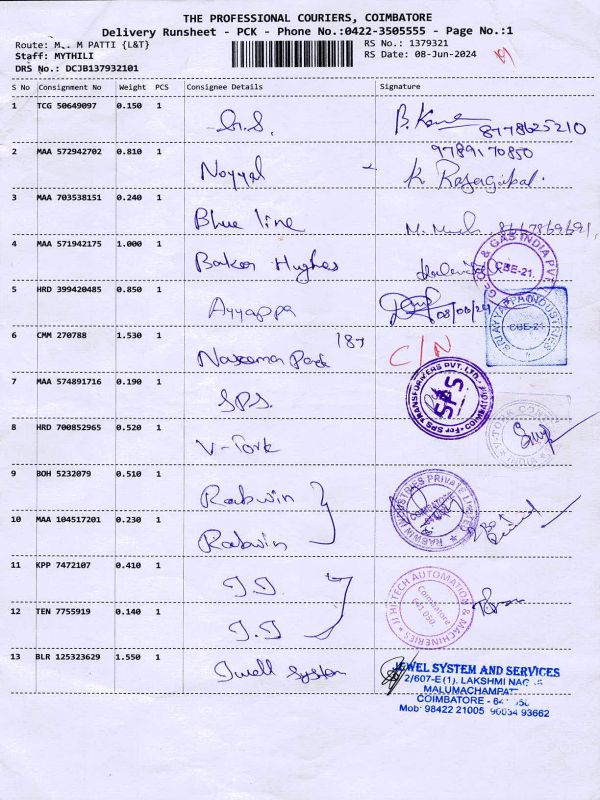 THE PROFESSIONAL COURIERS, COIMBATORE
Delivery Runsheet - PCK - Phone No.:0422-3505555 - Page No.:1
Route: M.. M PATTI {L&T}
RS No.: 1379321
Staff: MYTHILI
RS Date: 08-Jun-2024
DRS No.: DCJB137932101
S No Consignment No Weight PCS Consignee Details Signature
1 TCG 50649097 0.150 1
8778625210
2 MAA 572942702 0.810 1 Noyyal 9789170850
K. Rajagopal.
3 MAA 703538151 0.240 1 Blue line 8667869691,
4 MAA 571942175 1.000 1 Baker Hughes
& GAS INDIA PVT
CBE-21.
5 HRD 399420485 0.850 1 Ayyappa 08/06/24
SRI AYYAPPA INDUSTRIES
CBE-21
6 CMM 270788 1.530 1 187 C/N
7 MAA 574891716 0.190 1 SPS.
For SPS TRANSFORMERS PVT. LTD.
SPS
8 HRD 700852965 0.520 1 V-Tork
9 BOH 5232079 0.510 1 Rabwin
RABWIN INDUSTRIES PRIVATE LIMITED
COIMBATORE
10 MAA 104517201 0.230 1 Rabwin
11 KPP 7472107 0.410 1 J.J.
JJ HI-TECH AUTOMATION & MACHINERIES
Coimbatore
641 050
12 TEN 7755919 0.140 1 J.J
13 BLR 125323629 1.550 1 Jwell System
JEWEL SYSTEM AND SERVICES
2/607-E (1), LAKSHMI
MALUMACHAMPATTI
COIMBATORE - 641 050
Mob: 98422 21005 90034 93662